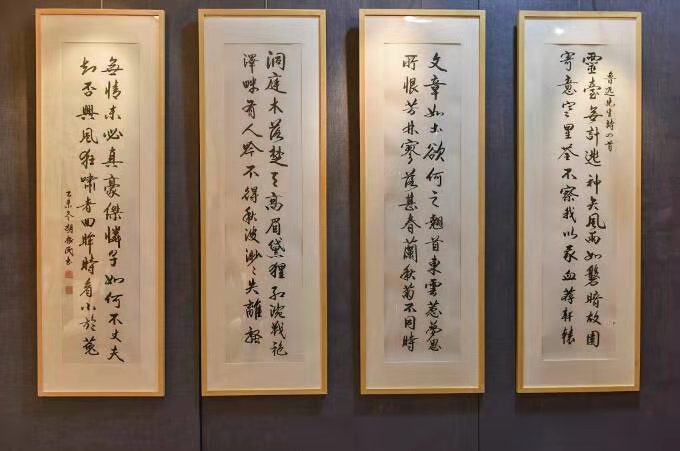 魯迅先生詩四首
靈臺無計逃神矢風雨如磐暗故園
寄意寒星荃不察我以我血薦軒轅
文章如土欲何之翹首東雲惹夢思
所恨芳林寥落甚春蘭秋菊不同時
洞庭木落楚天高眉黛猩紅涴戰袍
澤畔有人吟不得秋波渺〻失離騷
無情未必真豪傑憐子如何不丈夫
知否興風狂嘯者回眸時看小於菟
乙未冬胡書